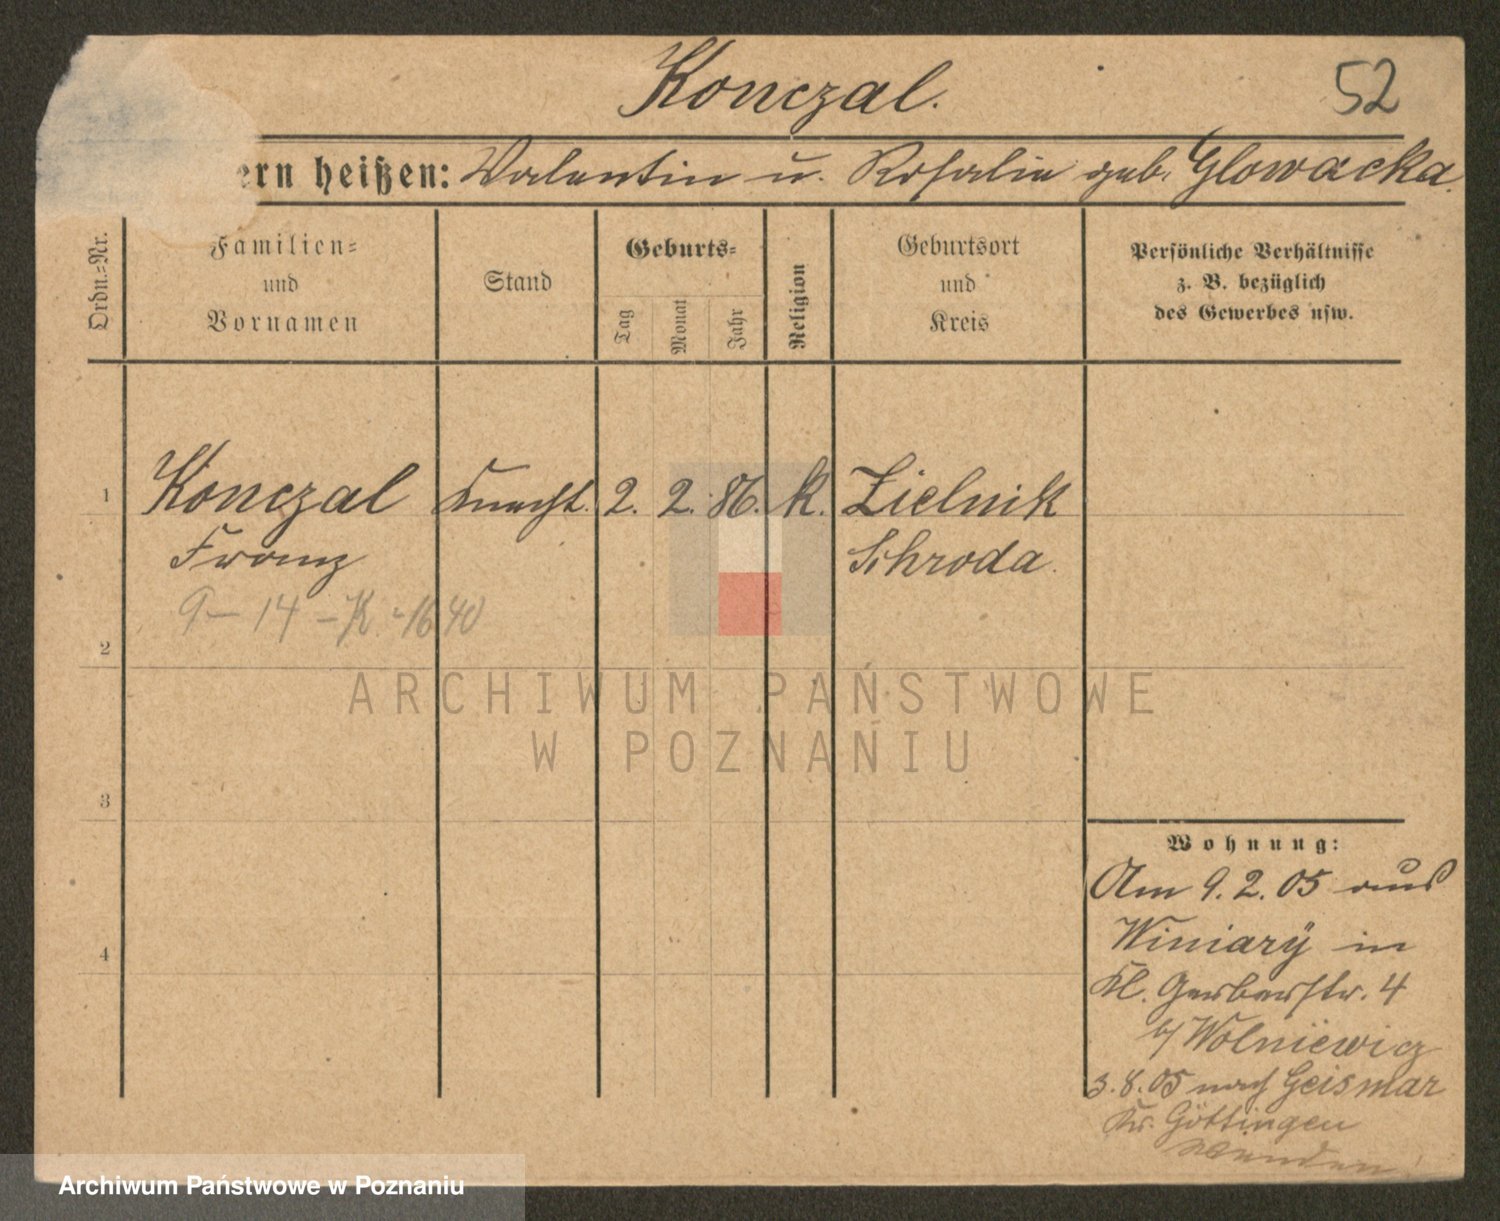 Konczal.
52
ern heißen: Valentin u. Rosalie geb. Glowacka.
Ordn.=Nr.
Familien=
und
Vornamen
Stand
Geburts=
Tag
Monat
Jahr
Religion
Geburtsort
und
Kreis
Persönliche Verhältnisse
z. B. bezüglich
des Gewerbes usw.
1 Konczal Knecht. 2. 2. 86. k. Zielnik
Franz Schroda.
9 – 14 – K. - 1640
2
ARCHIWUM PAŃSTWOWE
W POZNANIU
3
Wohnung:
Am 9. 2. 05 aus
Winiary in
4
Kl. Gerberstr. 4
b/ Wolniewicz
3. 8. 05 nach Geismar
Kr. Göttingen
Archiwum Państwowe w Poznaniu